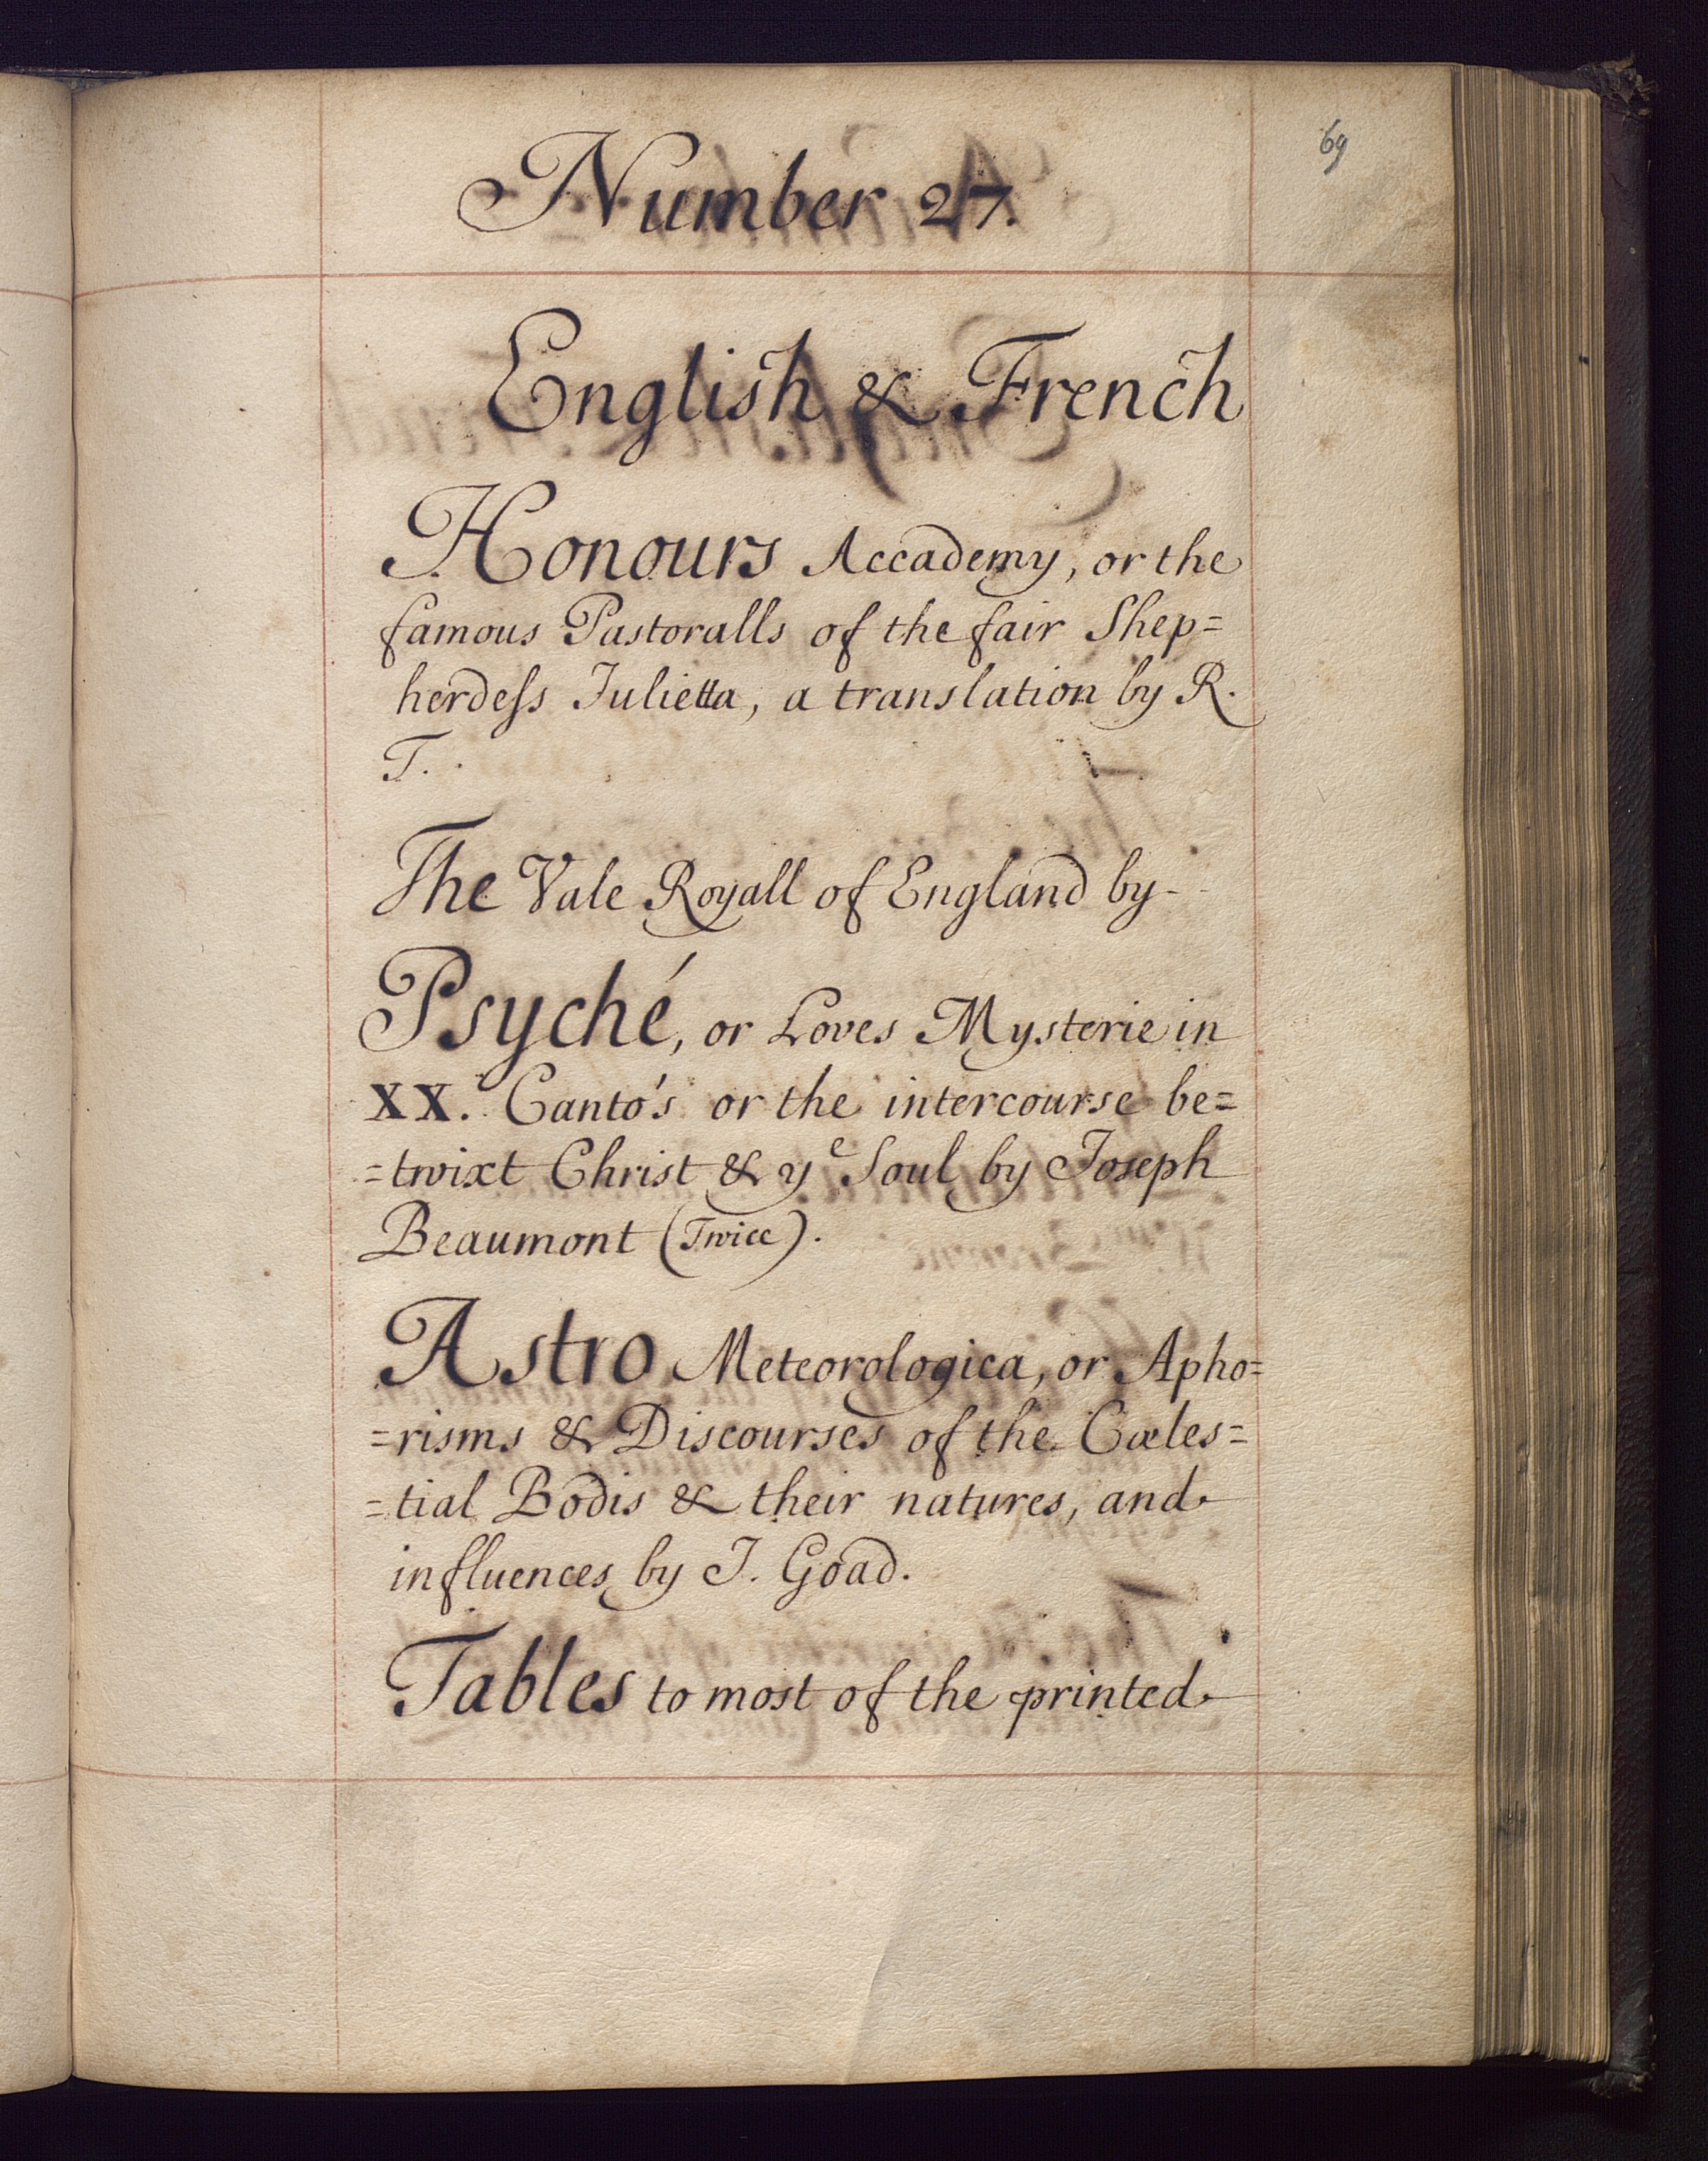 69
Number 27.
English & French
Honours Accademy, or the
famous Pastoralls of the fair Shep=
herdeſs Julietta, a translation by R.
T. .
The Vale Royall of England by-
Psyché, or Loves Mysterie in
XX. Canto's or the intercourse be=
=twixt Christ & yᵉ Soul by Joseph
Beaumont (Twice).
Astro Meteorologica, or Apho=
=risms & Discourses of the Cœles=
=tial Bodis & their natures, and
influences by J. Goad.
Tables to most of the printed